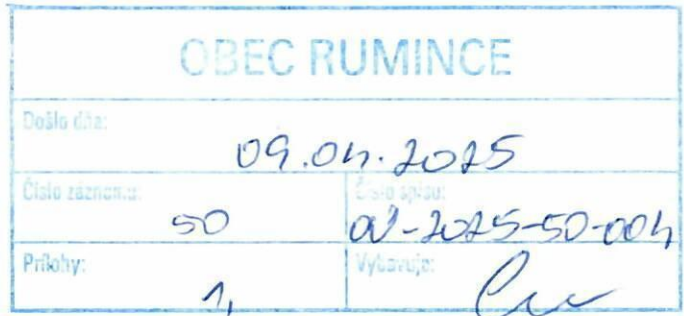 OBEC RUMINCE
Došlo dňa:
09.04.2025
Číslo záznamu: Číslo spisu:
50 OÚ-2025-50-004
Prílohy: Vybavuje:
1,